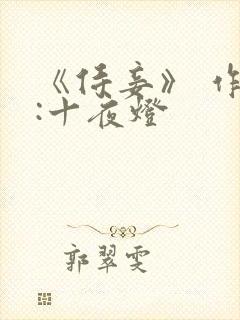 《侯妾》 作
:十夜燈
郭翠雯